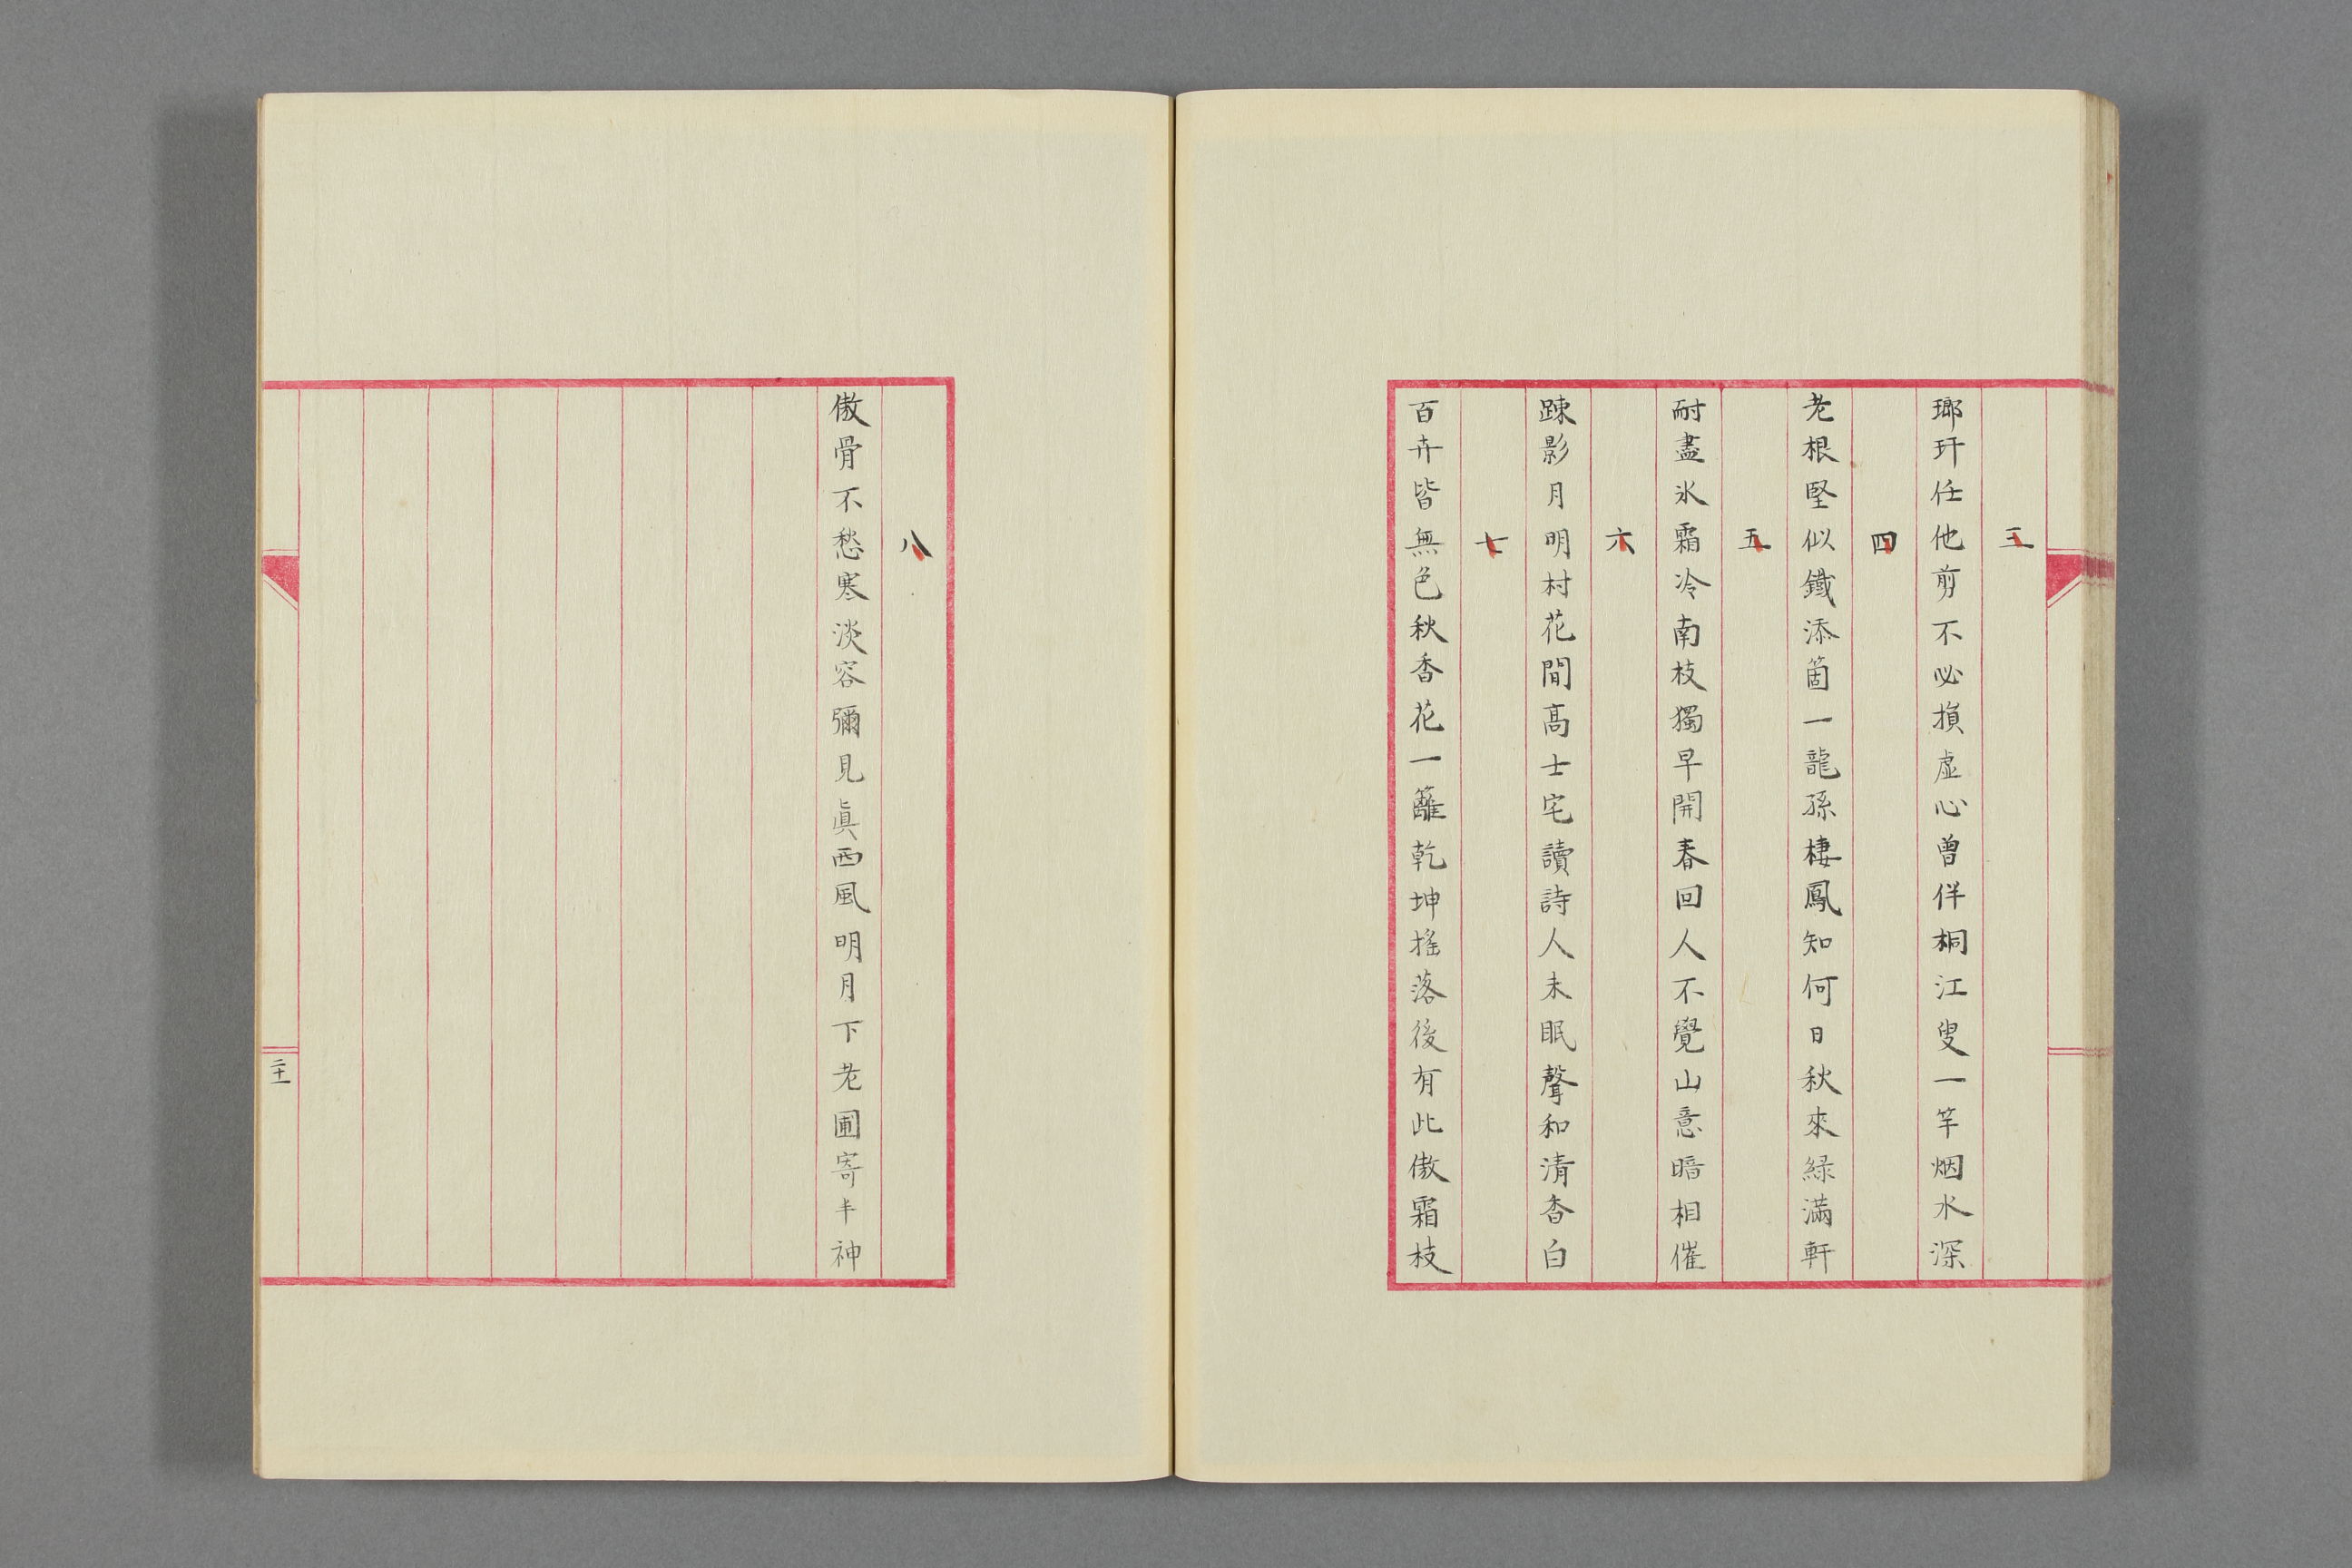 三
瑯玕任他剪不必損虛心曾伴桐江叟一竿烟水深
四
老根堅似鐵添箇一龍孫棲鳳知何日秋來綠滿軒
五
耐盡氷霜冷南枝獨早開春回人不覺山意暗相催
六
踈影月明村花間高士宅讀詩人未眠聲和清香白
七
百卉皆無色秋香花一籬乾坤搖落後有此傲霜枝
八
傲骨不愁寒淡容彌見眞西風明月下老圃寄半神
二十一